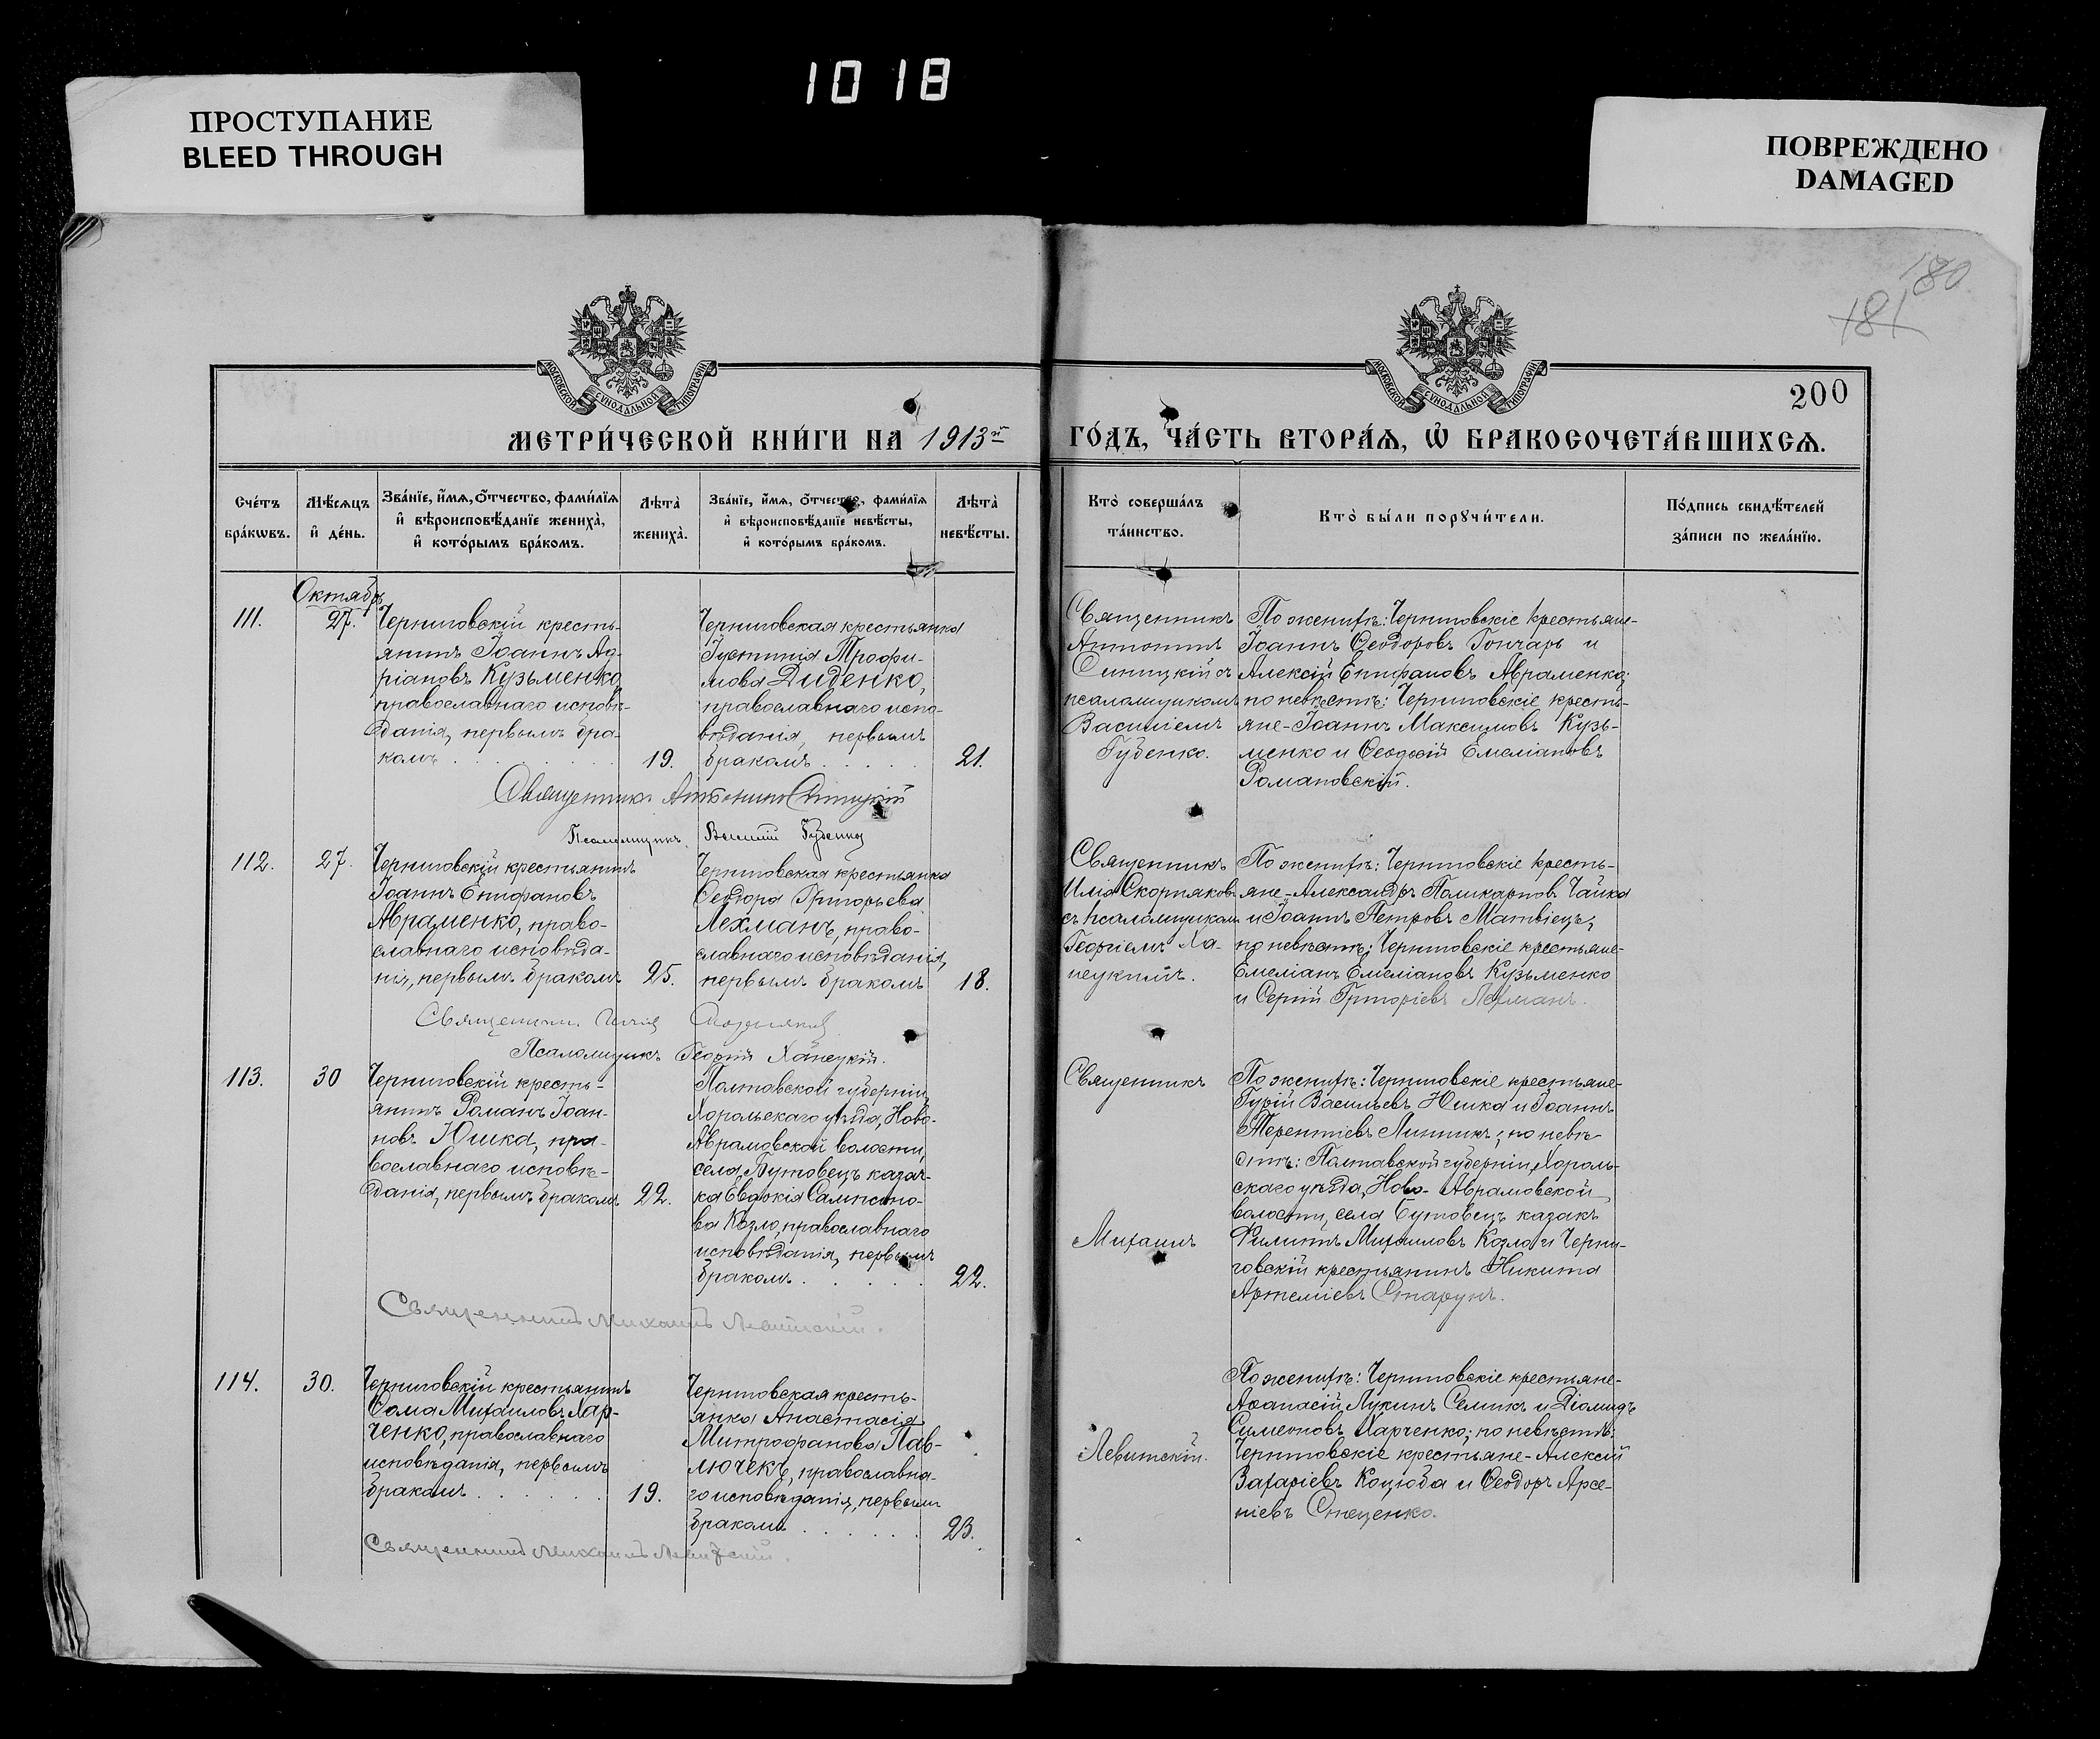 1018
ПРОСТУПАНИЕ
BLEED THROUGH
ПОВРЕЖДЕНО
DAMAGED
180
181
200
МОСКОВСКОЙ СѴНОДАЛЬНОЙ ТИПОГРАФІИ
МОСКОВСКОЙ СѴНОДАЛЬНОЙ ТИПОГРАФІИ
МЕТРИ́ЧЕСКОЙ КНИ́ГИ НА 1913й
ГО́ДЪ, ЧА́СТЬ ВТОРА́Ѧ, Ѽ БРАКОСОЧЕТА́ВШИХСѦ.
Сче́тъ
бра́кѡвъ.
Мѣ́сѧцъ
и҆ де́нь.
Зва́нїе, и҆́мѧ, ѻ҆́тчество, фами́лїѧ
и҆ вѣроисповѣ́данїе жениха̀,
и҆ кото́рымъ бра́комъ.
Лѣ́та
жениха̀.
Зва́нїе, и҆́мѧ, ѻ҆́тчество, фами́лїѧ
и҆ вѣроисповѣ́данїе невѣ́сты,
и҆ кото́рымъ бра́комъ.
Лѣ́та
невѣ́сты.
Кто̀ соверша́лъ
та́инство.
Кто̀ бы́ли порꙋчи́тели.
По́дпись свидѣ́телей
за́писи по жела́нїю.
Октябр
111.
27.
Черниговскій кресть-
янинъ Іоаннъ Ад-
ріановъ Кузьменко
православнаго исповѣ-
данія, первымъ бра-
комъ . . . . . .
19.
Черниговская крестьянка
Іустинія Трофи-
мова Диденко,
православнаго испо-
вѣданія, первымъ
бракомъ . . . . .
21.
Священникъ
Антонинъ
Синицкій съ
псаломщикомъ
Василіемъ
Губенко.
По женихѣ: Черниговскіе крестьяне-
Іоаннъ Ѳеодоровъ Гончаръ и
Алексій Епифановъ Авраменко;
по невѣстѣ: Черниговскіе кресть-
яне-Іоаннъ Максимовъ Кузь-
менко и Ѳеодосій Емеліановъ
Романовскій.
Священникъ Антонинъ Синицкій
Псаломщикъ Василій Губенко
112.
27.
Черниговскій крестьянинъ
Іоаннъ Епифановъ
Авраменко, право-
славнаго исповѣда-
нія, первымъ бракомъ
25.
Черниговская крестьянка
Ѳеодора Григорьева
Лехманъ, право-
славнаго исповѣданія,
первымъ бракомъ
18.
Священникъ
Илія Скорняковъ
съ псаломщикомъ
Георгіемъ Ха-
нецкимъ.
По женихѣ: Черниговскіе кресть-
яне-Александръ Поликарповъ Чайка
и Іоаннъ Петровъ Матвіецъ;
по невѣстѣ: Черниговскіе крестьяне-
Емеліанъ Емеліановъ Кузьменко
и Сергій Григоріевъ Лехманъ.
Священникъ Илія Скорняковъ
Псаломщикъ Георгій Ханецкій.
113.
30
Черниговскій кресть-
янинъ Романъ Іоан-
новъ Юшка, пра-
вославнаго исповѣ-
данія, первымъ бракомъ
22.
Полтавской губерніи
Хорольскаго уѣзда, Ново-
Аврамовской волости,
села Бутовецъ казач-
ка Евдокія Сампсоно-
ва Козло, православнаго
исповѣданія, первымъ
бракомъ . . . . .
22.
Священникъ
Михаилъ
По женихѣ: Черниговскіе крестьяне-
Гурій Васильевъ Юшка и Іоаннъ
Терентіевъ Линникъ; по невѣ-
стѣ: Полтавской губерніи, Хороль-
скаго уѣзда, Ново-Аврамовской
волости, села Бутовецъ казакъ
Филиппъ Михаиловъ Козло и Черни-
говскій крестьянинъ Никита
Артеміевъ Старунъ.
Священникъ Михаилъ Левитскій.
114.
30.
Черниговскій крестьянинъ
Ѳома Михаиловъ Хар-
ченко, православнаго
исповѣданія, первымъ
бракомъ . . . . . .
19.
Черниговская кресть-
янка Анастасія
Митрофанова Пав-
лючекъ, православна-
го исповѣданія, первымъ
бракомъ . . . . . .
23.
Левитскій.
По женихѣ: Черниговскіе крестьяне-
Аѳанасій Лукинъ Семикъ и Діомидъ
Симеоновъ Харченко; по невѣстѣ:
Черниговскіе крестьяне-Алексій
Захаріевъ Коцюба и Ѳеодоръ Арсе-
ніевъ Стеценко.
Священникъ Михаилъ Левитскій.